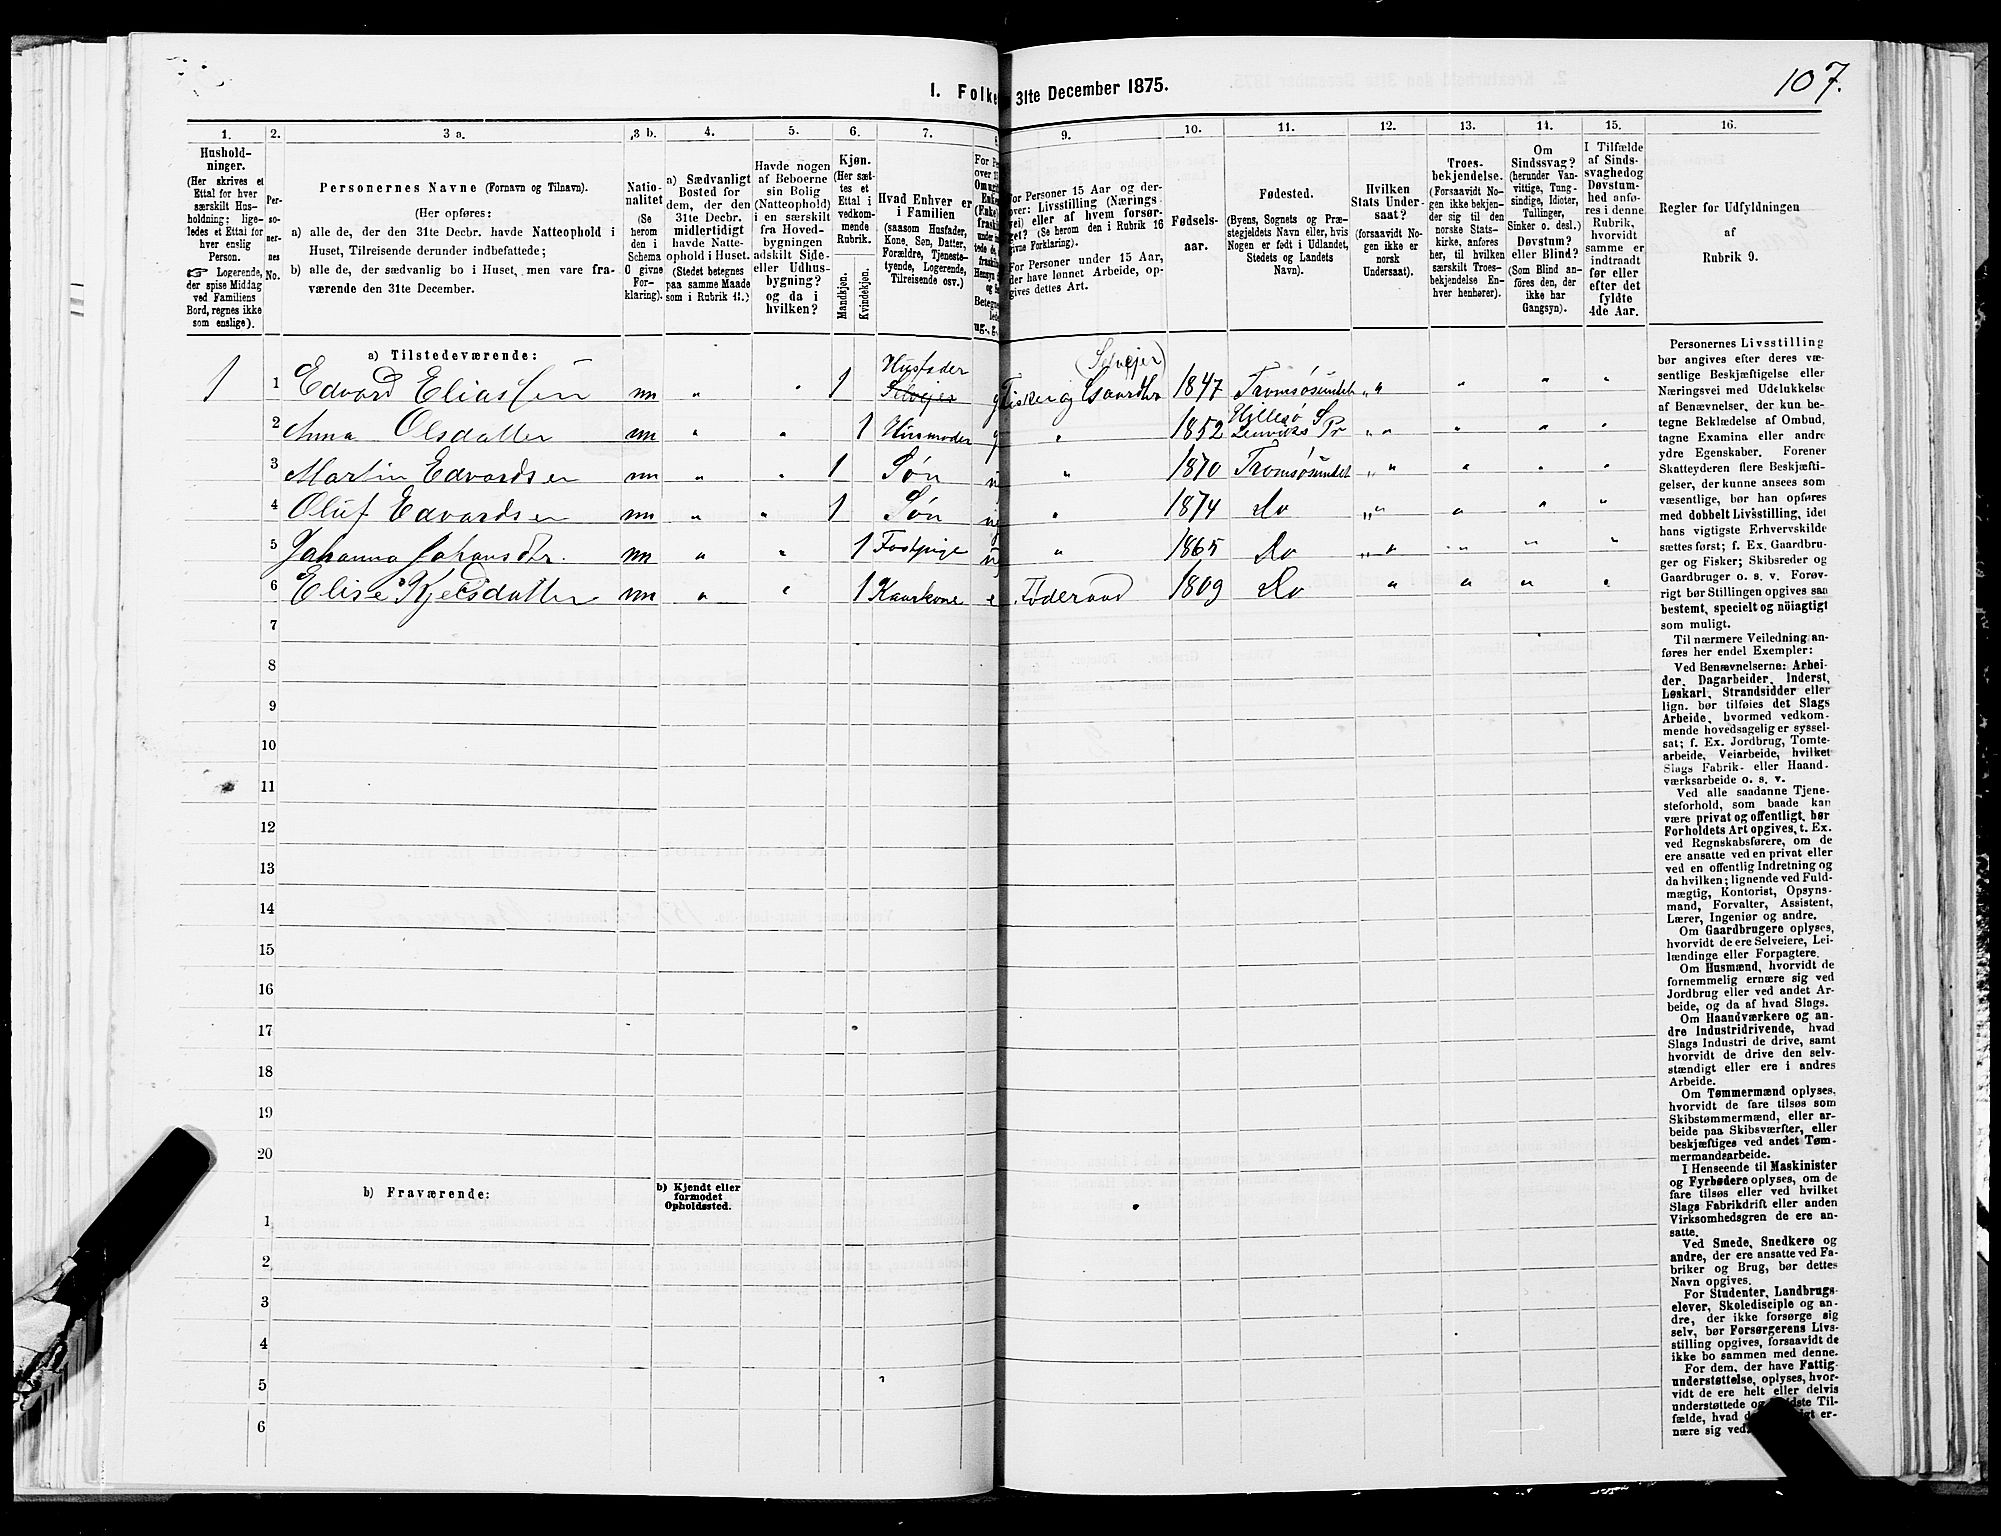 107.
1. Folke 31te December 1875.
1. 2. 3 a. 3 b. 4. 5. 6. 7. 8 9. 10. 11. 12. 13. 14. 15. 16.
Hushold-
ninger.
(Her skrives et
Ettal for hver
særskilt Hus-
holdning; lige-
ledes et Ettal for
hver enslig
Person.
☞ Logerende,
der spise Middag
ved Familiens
Bord, regnes ikke
som enslige).
Per-
so-
ner-
nes
No.
Personernes Navne (Fornavn og Tilnavn).
(Her opføres:
a) alle de, der den 31te Decbr. havde Natteophold i
Huset, Tilreisende derunder indbefattede;
b) alle de, der sædvanlig bo i Huset, men vare fra-
værende den 31te December.
Natio-
nalitet
(Se
herom
den i
Schema
O givne
For-
klaring).
a) Sædvanligt
Bosted for
dem, der den
31te Decbr.
midlertidigt
havde Natte-
ophold i Huset.
(Stedet betegnes
paa samme Maade
som i Rubrik 11.)
Havde nogen
af Beboerne
sin Bolig
(Natteophold)
i en særskilt
fra Hoved-
bygningen
adskilt Side-
eller Udhus-
bygning?
og da i
hvilken?
Kjøn.
(Her sæt-
tes et
Ettal i
vedkom-
mende
Rubrik.
Mandkjøn.
Kvindekjøn.
Hvad Enhver er
i Familien
(saasom Husfader,
Kone, Søn, Datter,
Forældre, Tjeneste-
tyende, Logerende,
Tilreisende osv.)
For Personer 15 Aar og der-
over: Livsstilling (Nærings-
vei) eller af hvem forsør-
get? (Se herom den i Rubrik 16
givne Forklaring).
For Personer under 15 Aar,
der have lønnet Arbeide, op-
gives dettes Art.
Fødsels-
aar.
Fødested.
(Byens, Sognets og Præ-
stegjeldets Navn eller, hvis
Nogen er født i Udlandet,
Stedets og Landets
Navn).
Hvilken
Stats Under-
saat?
(forsaavidt No-
gen ikke er
norsk
Undersaat).
Troes-
bekjendelse.
(Forsaavidt No-
gen ikke bekjen-
der sig til den
norske Stats-
kirke, anføres
her, til hvilken
særskilt Troes-
bekjendelse En-
hver henhører).
Om
Sindssvag?
(herunder Van-
vittige, Tung-
sindige, Idioter,
Tullinger,
Sinker o. desl.)
Døvstum?
eller Blind?
(Som Blind an-
føres den, der
ikke har
Gangsyn).
I Tilfælde
af Sinds-
svaghed og
Døvstum-
hed anfø-
res i denne
Rubrik,
hvorvidt
samme er
indtraadt
før eller
efter det
fyldte
4de Aar.
Regler for Udfyldningen
af
Rubrik 9.
a) Tilstedeværende:
1 1 Edvard Eliassen nn " " 1 Husfader Selvejer g Fisker og Gaardbr (Selvejer) 1847 Tromsøsundet " " " " "
2 Anna Olsdatter nn " " 1 Husmoder g " 1852 Hillesø S Lenviks Pr " " " " "
3 Martin Edvardsen nn " " 1 Søn " 1870 Tromsøsundet " " " " "
4 Oluf Edvardsen nn " " 1 Søn ug " 1874 Do " " " " "
5 Johanna Johansdtr. nn " " 1 Fostpige " 1865 Do " " " " "
6 Elise Kjelsdatter nn " " 1 Kaarkone e Føderaad 1809 Do " " " "
7
8
9
10
11
12
13
14
15
16
17
18
19
20
b) Fraværende:
b) Kjendt eller
formodet
Opholdssted.
1
2
3
4
5
6
Personernes Livsstilling
bør angives efter deres væ-
sentlige Beskjæftigelse eller
Næringsvei med Udelukkelse
af Benævnelser, der kun be-
tegne Beklædelse af Ombud,
tagne Examina eller andre
ydre Egenskaber. Forener
Skatteyderen flere Beskjæfti-
gelser, der kunne ansees som
væsentlige, bør han opføres
med dobbelt Livsstilling, idet
hans vigtigste Erhvervskilde
sættes først; f. Ex. Gaardbru-
ger og Fisker; Skibsreder og
Gaardbruger o. s. v. Forøv-
rigt bør Stillingen opgives saa
bestemt, specielt og nöiagtigt
som muligt.
Til nærmere Veiledning an-
føres her endel Exempler:
Ved Benævnelserne: Arbei-
der, Dagarbeider, Inderst,
Løskarl, Strandsidder eller
lign. bør tilføies det Slags
Arbeide, hvormed vedkom-
mende hovedsagelig er syssel-
sat; f. Ex. Jordbrug, Tomte-
arbeide, Veiarbeide, hvilket
Slags Fabrik- eller Haand-
værksarbeide o. s. v.
Ved alle saadanne Tjene-
steforhold, som baade kan
være privat og offentligt, bør
Forholdets Art opgives, t. Ex.
ved Regnskabsførere, om de
ere ansatte ved en privat eller
ved en offentlig Indretning og
da hvilken; lignende ved Fuld-
mægtig, Kontorist, Opsyns-
mand, Forvalter, Assistent,
Lærer, Ingeniør og andre.
Om Gaardbrugere oplyses,
hvorvidt de ere Selveiere, Lei-
lændinge eller Forpagtere.
Om Husmænd, hvorvidt de
fornemmelig ernære sig ved
Jordbrug eller ved andet Ar-
beide, og da af hvad Slags.
Om Haandværkere og an-
dre Industridrivende, hvad
Slags Industri de drive, samt
hvorvidt de drive den selv-
stændigt eller ere i andres
Arbeide.
Om Tømmermænd oplyses,
hvorvidt de fare tilsøs som
Skibstømmermænd, eller ar-
beide paa Skibsværfter, eller
beskjæftiges ved andet Tøm-
mermandsarbeide.
I Henseende til Maskinister
og Fyrbødere oplyses, om de
fare tilsøs eller ved hvilket
Slags Fabrikdrift eller anden
Virksomhedsgren de ere an-
satte.
Ved Smede, Snedkere og
andre, der ere ansatte ved Fa-
briker og Brug, bør dettes
Navn opgives.
For Studenter, Landbrugs-
elever, Skoledisciple og an-
dre, der ikke forsørge sig
selv, bør Forsørgerens Livs-
stilling opgives, forsaavidt de
ikke bo sammen med denne.
For dem, der have Fattig-
understøttelse, oplyses, hvor-
vidt de ere helt eller delvis
understøttede og i sidste Til-
fælde, hvad de er-
nære sig ved.